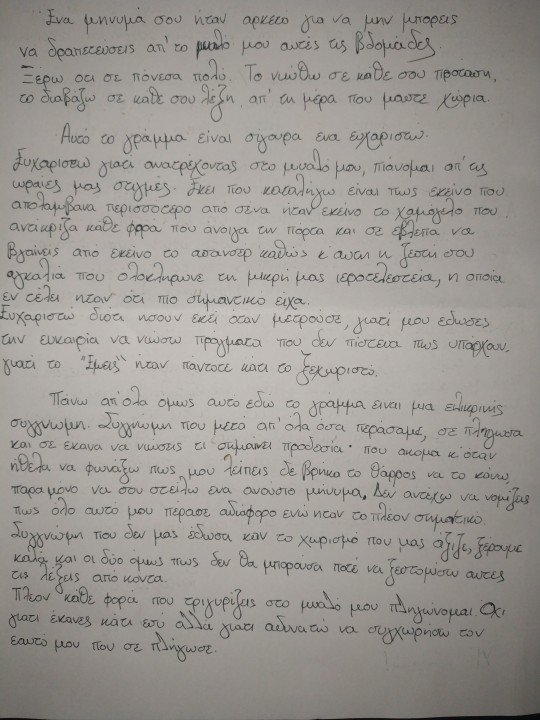 Ένα μήνυμά σου ήταν αρκετό για να μην μπορείς
να δραπετεύσεις απ' το μυαλό μου αυτές τις βδομάδες.
Ξέρω οτι σε πόνεσα πολύ. Το νιώθω σε κάθε σου πρόταση,
το διαβάζω σε κάθε σου λέξη απ' τη μέρα που μαστε χώρια.
Αυτό το γράμμα είναι σίγουρα ενα ευχαριστω.
Ευχαριστώ γιατί ανατρέχοντας στο μυαλό μου, πιάνομαι απ' τις
ωραίες μας στιγμές. Εκεί που καταλήγω είναι πως εκείνο που
απολάμβανα περισσότερο από σένα ήταν εκείνο το χαμόγελο που
αντίκριζα κάθε φορά που άνοιγα την πόρτα και σε έβλεπα να
βγαίνεις από εκείνο το ασανσέρ καθώς κ' αυτη η ζεστή σου
αγκαλιά που ολοκλήρωνε τη μικρή μας ιεροτελεστεία, η οποία
εν τέλει ήταν ότι πιο σημαντικό είχα.
Ευχαριστώ διότι ήσουν εκεί όταν μετρούσε, γιατί μου έδωσες
την ευκαιρία να νιώσω πράγματα που δεν πίστευα πως υπάρχουν.
γιατί το "Εμείς" ήταν πάντοτε κάτι το ξεχωριστό.
Πάνω απ' όλα όμως αυτό εδώ το γράμμα ειναι μια ειλικρινής
συγγνώμη. Συγγνώμη που μετά απ' όλα όσα περάσαμε, σε πλήγωσα
και σε έκανα να νιώσεις τι σημαίνει προδοσία· που ακόμα κ' όταν
ήθελα να φωνάξω πως μου λείπεις δε βρήκα το θάρρος να το κάνω,
παρα μονο να σου στείλω ενα ανούσιο μήνυμα. Δεν αντέχω να νομίζεις
πως όλο αυτό μου πέρασε αδιάφορο ενώ ήταν το πλέον σημαντικό.
Συγγνώμη που δεν μας έδωσα καν το χωρισμό που μας άξιζε, ξέρουμε
καλά και οι δύο όμως πως δεν θα μπορούσα ποτέ να ξεστομίσω αυτές
τις λέξεις από κοντά.
Πλέον κάθε φορά που τριγυρίζεις στο μυαλό μου πληγώνομαι. Όχι
γιατι έκανες κάτι εσύ αλλά γιατι αδυνατώ να συγχωρήσω τον
εαυτό μου που σε πλήγωσε.